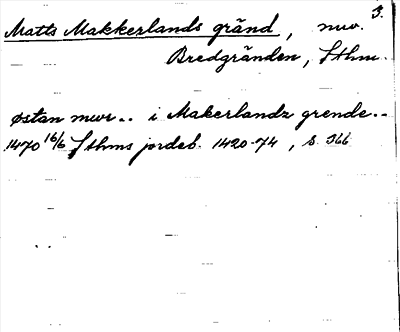 3.
Matts Makkerlands gränd, nuv.
Bredgränden, Sthm.
østan mwr.. i Makerlandz grende..
1470 16/6 Sthms jordeb. 1420-74, s 366